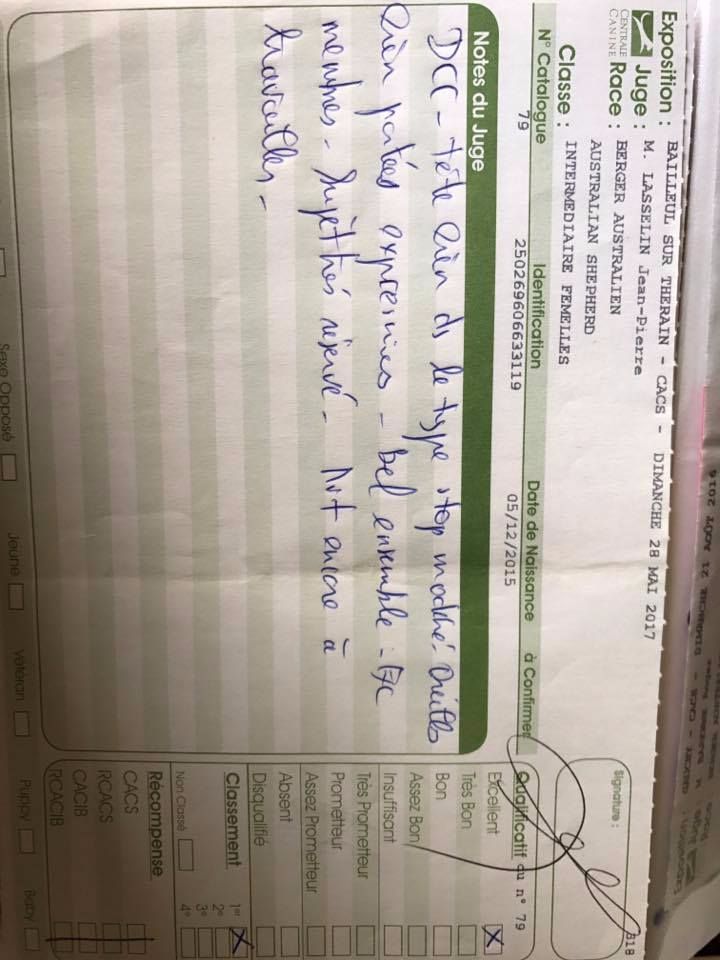 Exposition : BAILLEUL SUR THERAIN - CACS - DIMANCHE 28 MAI 2017
CENTRALE CANINE
Juge : M. LASSELIN Jean-Pierre
Race : BERGER AUSTRALIEN
AUSTRALIAN SHEPHERD
Classe : INTERMEDIAIRE FEMELLES
Signature :
818
N° Catalogue Identification Date de Naissance à Confirmer
79 250269606633119 05/12/2015
Qualificatif du n° 79
Notes du Juge
DCC - tête bien ds le type stop marqué. Oreilles
bien portées expressives - bel ensemble -
membres - Sujet très réservé - Art encore à
travailler -
Excellent X
Très Bon
Bon
Assez Bon
Insuffisant
Très Prometteur
Prometteur
Assez Prometteur
Absent
Disqualifié
Classement
1er X
2e
3e
4e
Non Classé
Récompense
CACS
RCACS
CACIB
RCACIB
Sexe Opposé
Jeune
Vétéran
Puppy
Baby